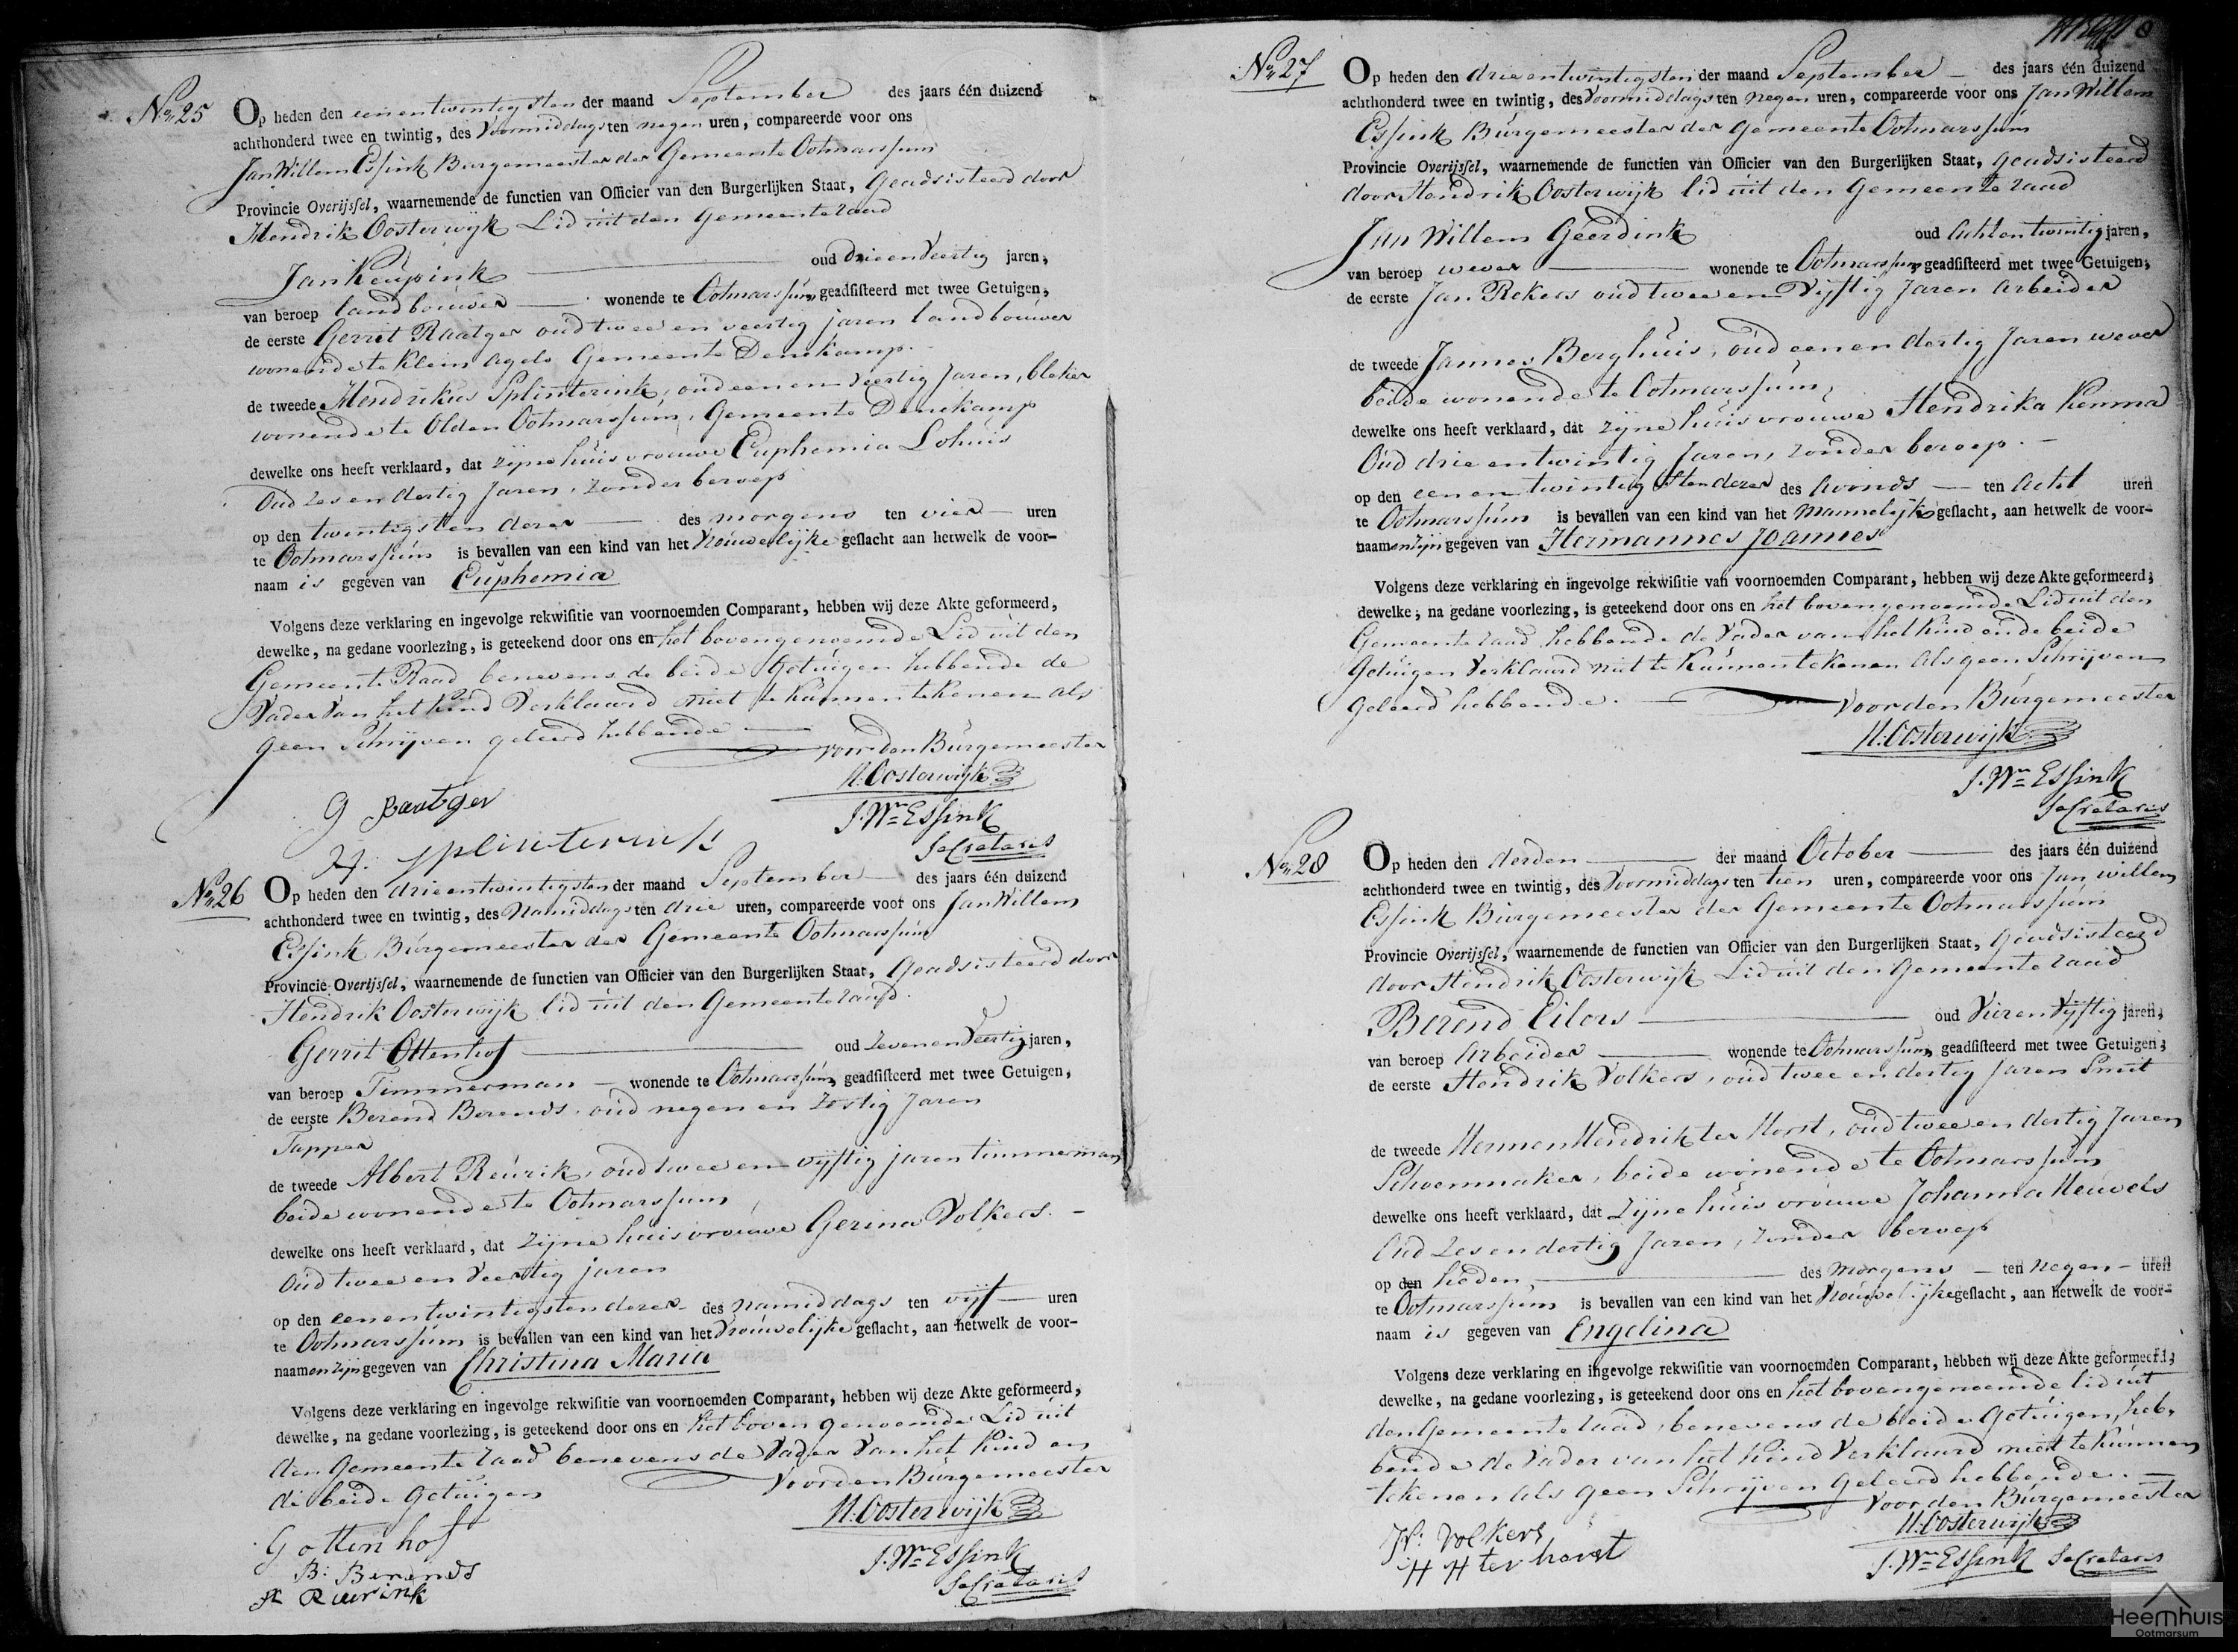 No 25
Op heden den een en twintigsten der maand September des jaars één duizend
achthonderd twee en twintig, des Voormiddags ten negen uren, compareerde voor ons
Jan Willem Essink Burgemeester der Gemeente Ootmarssum
Provincie Overijssel, waarnemende de functien van Officier van den Burgerlijken Staat, Geadsisteerd door
Hendrik Oosterwijk Lid uit den Gemeente raad
Jan Keupink oud drie en Veertig jaren,
van beroep landbouwer wonende te Ootmarssum, geadsisteerd met twee Getuigen,
de eerste Gerrit Raatger oud twee en veertig jaren landbouwer
wonende te Klein Agelo Gemeente Denekamp.
de tweede Hendrikus Splinterink, oud een en veertig Jaren, bleker
wonende te Olden Ootmarssum, Gemeente Denekamp
dewelke ons heeft verklaard, dat zijne huisvrouwe Euphemia Lohuis
Oud zes en dertig Jaren, zonder beroep
op den twintigsten dezer des morgens ten vier uren
te Ootmarssum is bevallen van een kind van het Vrouwelijke geslacht aan hetwelk de voor-
naam is gegeven van Euphemia
Volgens deze verklaring en ingevolge rekwisitie van voornoemden Comparant, hebben wij deze Akte geformeerd,
dewelke, na gedane voorlezing, is geteekend door ons en het bovengenoemde Lid uit den
Gemeente Raad benevens de beide Getuigen hebbende de
Vader van het kind Verklaard niet te kunnen tekenen als
geen Schrijven geleerd hebbende
voor den Burgemeester
H. Oosterwijk
G Raatger
J. Wm Essink
Secretaris
H. Splinterink
No 26
Op heden den drie en twintigsten der maand September des jaars één duizend
achthonderd twee en twintig, des Namiddags ten drie uren, compareerde voor ons Jan Willem
Essink Burgemeester der Gemeente Ootmarssum
Provincie Overijssel, waarnemende de functien van Officier van den Burgerlijken Staat, Geadsisteerd door
Hendrik Oosterwijk lid uit den Gemeente raad.
Gerrit Ottenhof oud zeven en Veertig jaren,
van beroep Timmerman wonende te Ootmarssum, geadsisteerd met twee Getuigen,
de eerste Berend Berends, oud negen en zestig Jaren
Tapper
de tweede Albert Reurik, oud twee en vijftig jaren timmerman
beide wonende te Ootmarssum
dewelke ons heeft verklaard, dat zijne huisvrouwe Gerina Volkers.
Oud twee en Veertig jaren
op den een en twintigsten dezer des namiddags ten vijf uren
te Ootmarssum is bevallen van een kind van het Vrouwelijke geslacht, aan hetwelk de voor-
naamen zijn gegeven van Christina Maria
Volgens deze verklaring en ingevolge rekwisitie van voornoemden Comparant, hebben wij deze Akte geformeerd,
dewelke, na gedane voorlezing, is geteekend door ons en het boven genoemde Lid uit
den Gemeente raad benevens de Vader Van het Kind en
de beide Getuigen
Voor den Burgemeester
H. Oosterwijk
G ottenhof
B. Berends
J. Wm Essink
Secretaris
A Ruerink
No 27
Op heden den drie en twintigsten der maand September des jaars één duizend
achthonderd twee en twintig, des Voormiddags ten negen uren, compareerde voor ons Jan Willem
Essink Burgemeester der Gemeente Ootmarssum
Provincie Overijssel, waarnemende de functien van Officier van den Burgerlijken Staat, Geadsisteerd
door Hendrik Oosterwijk lid uit den Gemeente raad
Jan Willem Geerdink oud Achtentwintig jaren,
van beroep wever wonende te Ootmarssum, geadsisteerd met twee Getuigen;
de eerste Jan Rekers oud twee en Vijftig Jaren Arbeider
de tweede Jannes Berghuis, oud een en dertig Jaren wever
beide wonende te Ootmarssum,
dewelke ons heeft verklaard, dat zijne huisvrouwe Hendrika Kemna
Oud drie en twintig Jaren, zonder beroep.
op den een en twintigsten dezer des Avonds ten Acht uren
te Ootmarssum is bevallen van een kind van het Mannelijk geslacht, aan hetwelk de voor-
naamen zijn gegeven van Hermannes Joannes
Volgens deze verklaring en ingevolge rekwisitie van voornoemden Comparant, hebben wij deze Akte geformeerd;
dewelke, na gedane voorlezing, is geteekend door ons en het bovengenoemde Lid uit den
Gemeente raad hebbende de Vader van het kind en de beide
Getuigen Verklaard niet te kunnen tekenen Als geen Schrijven
Geleerd hebbende.
Voor den Burgemeester
H. Oosterwijk
J. Wm Essink
Secretaris
No 28
Op heden den derden der maand October des jaars één duizend
achthonderd twee en twintig, des Voormiddags ten tien uren, compareerde voor ons Jan willem
Essink Burgemeester der Gemeente Ootmarssum
Provincie Overijssel, waarnemende de functien van Officier van den Burgerlijken Staat, Geadsisteerd
door Hendrik Oosterwijk Lid uit den Gemeente raad
Berend Eilers oud Vier en Vijftig jaren,
van beroep Arbeider wonende te Ootmarssum, geadsisteerd met twee Getuigen;
de eerste Hendrik Volkers, oud twee en dertig Jaren Smit
de tweede Hermen Hendrik ter Horst, oud twee en dertig Jaren
Schoenmaker, beide wonende te Ootmarssum
dewelke ons heeft verklaard, dat zijne huisvrouwe Johanna Heuvels
Oud zes en dertig Jaren, zonder beroep
op den heden, des morgens ten negen uren
te Ootmarssum is bevallen van een kind van het Vrouwelijke geslacht, aan hetwelk de voor-
naam is gegeven van Engelina
Volgens deze verklaring en ingevolge rekwisitie van voornoemden Comparant, hebben wij deze Akte geformeerd;
dewelke, na gedane voorlezing, is geteekend door ons en het bovengenoemde lid uit
den Gemeente raad, benevens de beide Getuigen, heb-
bende de Vader van het kind Verklaard niet te kunnen
tekenen als geen Schrijven Geleerd hebbende.
Voor den Burgemeester
H. Oosterwijk
H: Volkers
H H ter horst
J. Wm Essink Secretaris
Heemhuis
Ootmarsum